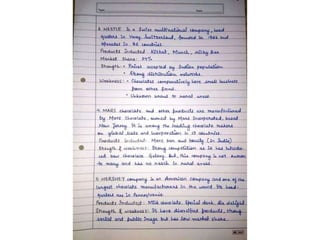 3. NESTLE is a Swiss multinational company, head
quaters in Vevey, Switzerland, founded in 1866 and
operates in 86 countries.
Products Included KitKat, Munch, milky Bar
Market Share: 24%
Strength: • Point accepted by Indian population
• Strong distribution network.
Weakness: • Chocolates comparatively have small business
from other front.
• Unknown issues to rural areas.
4. MARS chocolate and other products are manufactured
by Mars Chocolate, owned by Mars Incorporated, based
New Jersey. It is among the leading chocolate makers
on global scale and incorporation is 19 countries.
Products Included: Mars bar and bounty (in India)
Strength & weakness: Strong competition as it has introdu
ced new chocolate Galaxy. But, this company is not known
to many and has no reach in rural areas.
5. HERSHEY company is an American company and one of the
largest chocolate manufacturers in the world. Its head
quaters are in Pennsylvania.
Products Included: Milk chocolate, Special dark,
Strength & weakness: It have diversified products, strong
social and public Image but has low market share.